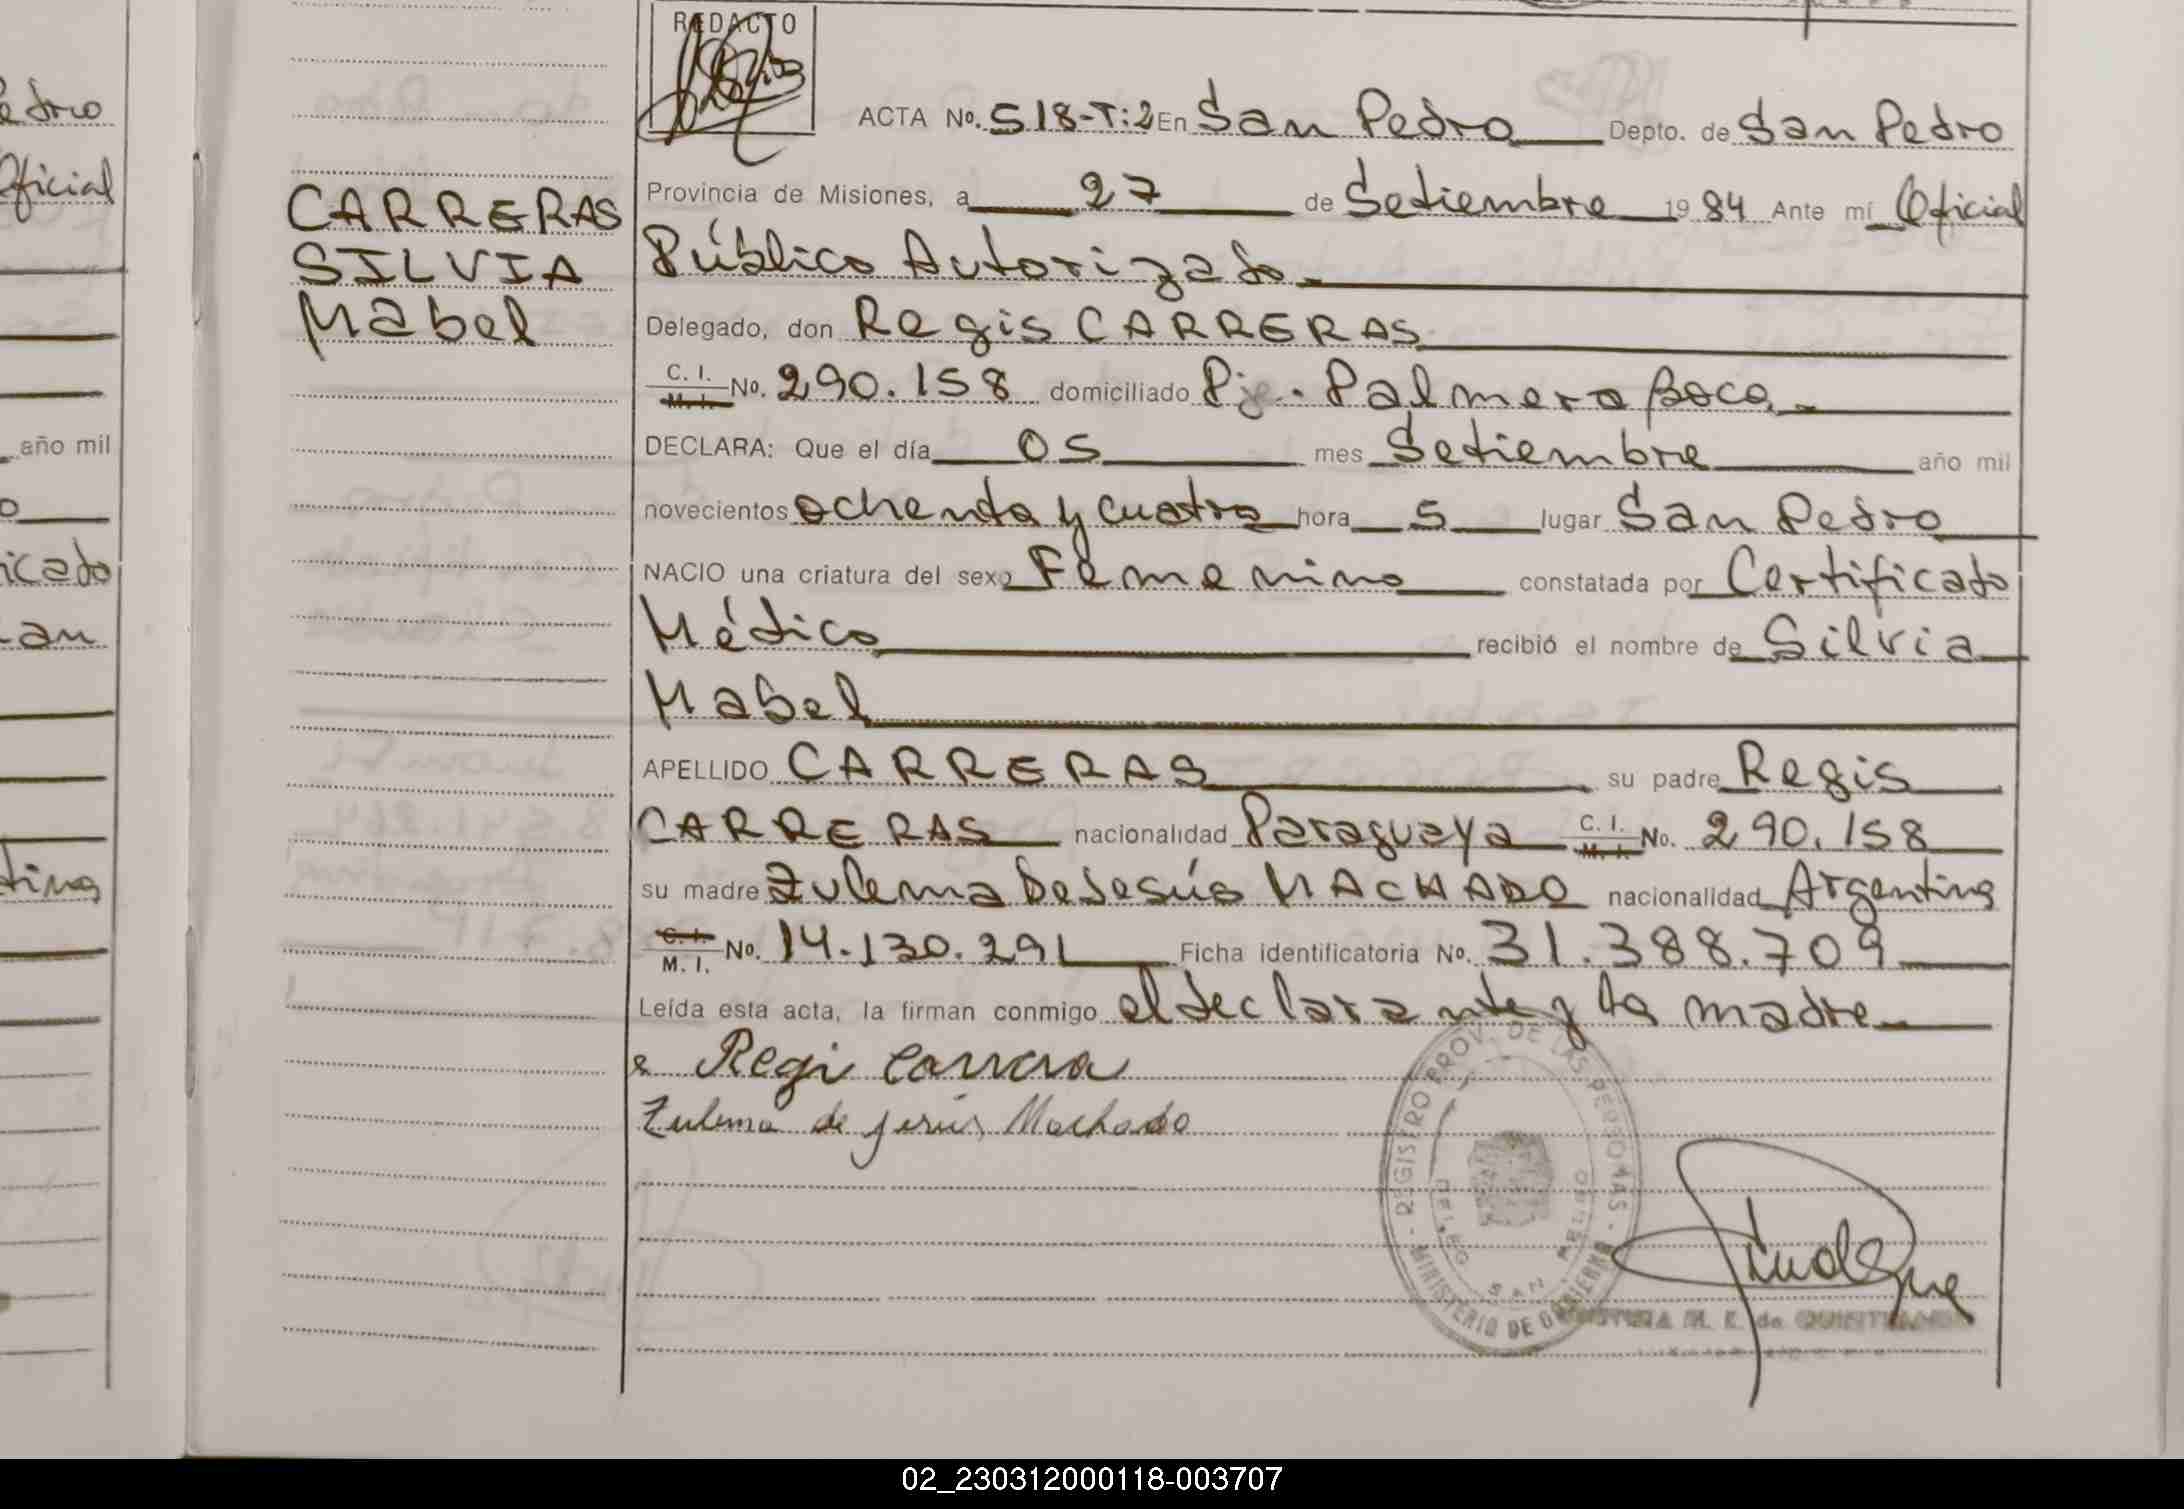 REDACTO
ACTA No. 518-T:2 En San Pedro Depto. de San Pedro
Provincia de Misiones, a 27 de Setiembre 1984 Ante mí Oficial
Público Autorizado
Delegado, don Regis CARRERAS
C. I. M. I. No. 290.158 domiciliado Pje. Palmera Boca
DECLARA: Que el día 05 mes Setiembre año mil
novecientos ochenta y cuatro hora 5 lugar San Pedro
NACIO una criatura del sexo Femenino constatada por Certificado
Médico recibió el nombre de Silvia
Mabel
APELLIDO CARRERAS su padre Regis
CARRERAS nacionalidad Paraguaya C. I. M. I. No. 290.158
su madre Zulema De Jesús MACHADO nacionalidad Argentina
C. I. M. I. No. 14.130.291 Ficha identificatoria No. 31.388.709
Leída esta acta, la firman conmigo el declarante y la madre
Regi Carrera
Zulema de Jesús Machado
CARRERAS
SILVIA
Mabel
REGISTRO PROV. DE LAS PERSONAS
MINISTERIO DE GOBIERNO
M. E. de
edro
Oficial
año mil
o
icado
an
tina
02_230312000118-003707